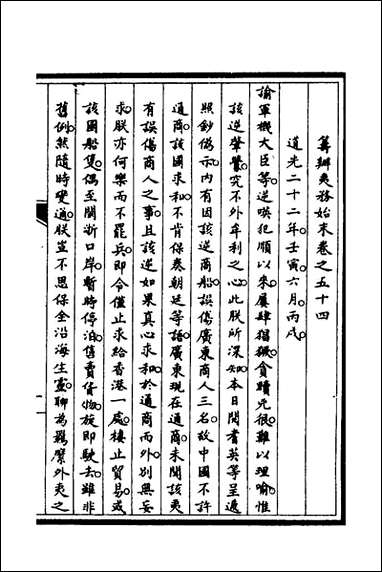 籌辦夷務始末卷之五十四
道光二十二年壬寅六月丙戌
諭軍機大臣等逆㗆犯順以來屢肆猖獗貪瀆兇狠難以理喻惟
該逆肇釁究不外牟利之心此朕所深知本日閱耆英等呈遞
照鈔偽示內有因該逆商船誤傷廣東商人三名故中國不許
通商該國求和不肯保奏朝廷等語廣東現在通商未聞該夷
有誤傷商人之事且該逆如果真心求和於通商而外別無妄
求朕亦何樂而不罷兵即令僅止求給香港一處棲止貿易或
該國船隻偶至閩浙口岸暫時停泊售賣貨物旋即駛去雖非
舊例然隨時變通朕豈不思保全沿海生靈聊為羈縻外夷之